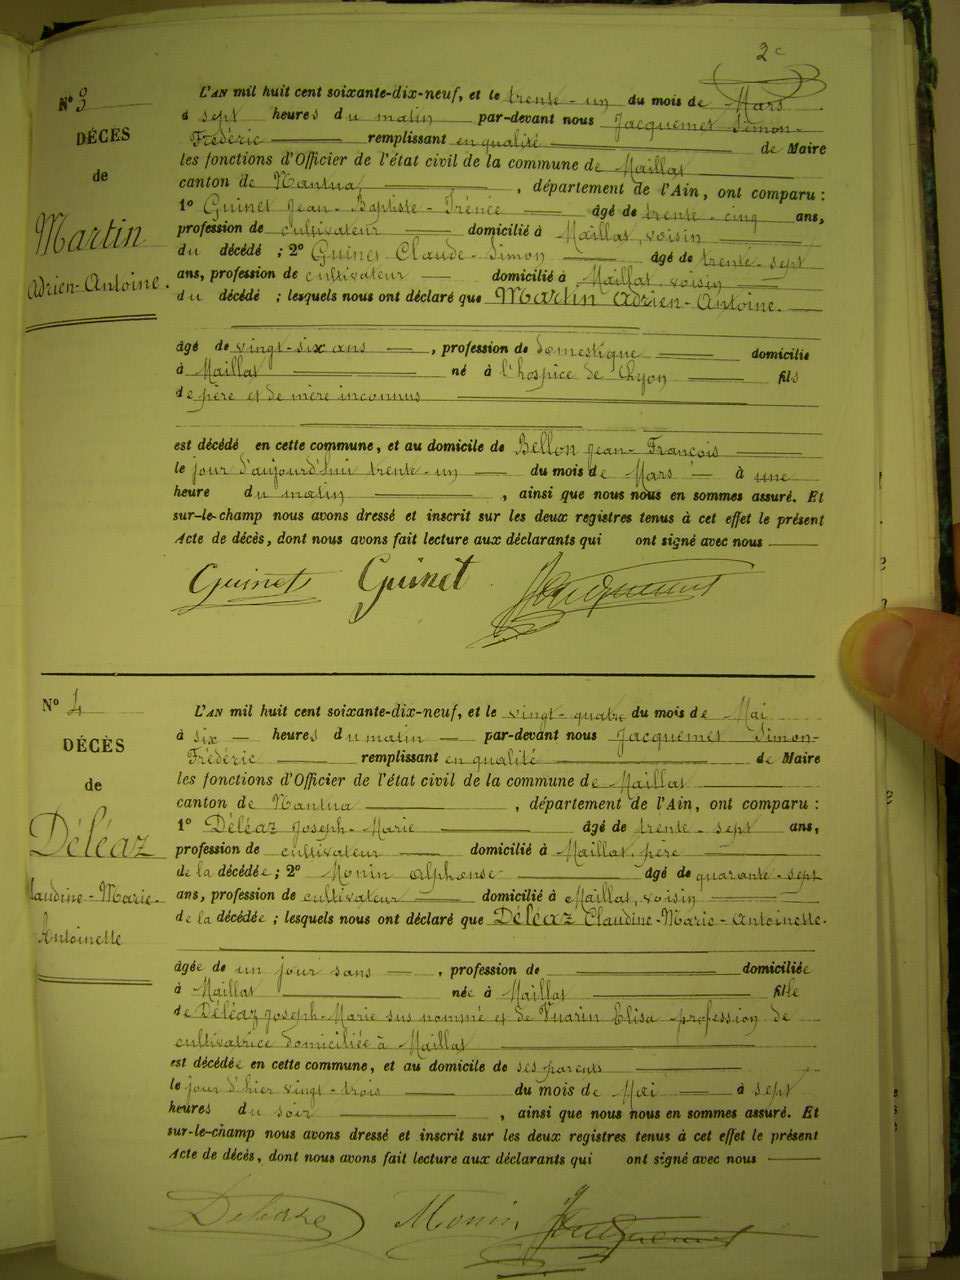 2e
N° 3
DÉCÈS
de
Martin
Adrien-Antoine.
L'AN mil huit cent soixante-dix-neuf, et le trente-un du mois de Mars
à sept heures du matin par-devant nous Jacquemet Simon-
Frédéric remplissant en qualité de Maire
les fonctions d'Officier de l'état civil de la commune de Maillat
canton de Nantua, , département de l'Ain, ont comparu :
1° Guinet Jean-Baptiste-Irénée âgé de trente-cinq ans,
profession de cultivateur domicilié à Maillat, voisin
du décédé ; 2° Guinet Claude-Simon âgé de trente-sept
ans, profession de cultivateur domicilié à Maillat, voisin
du décédé ; lesquels nous ont déclaré que Martin Adrien-Antoine.
âgé de vingt-six ans , profession de domestique domicilié
à Maillat né à l'hospice de Lyon fils
de père et de mère inconnus
est décédé en cette commune, et au domicile de Bellon Jean-François
le jour d'aujourd'hui trente-un du mois de Mars à une
heure du matin , ainsi que nous nous en sommes assuré. Et
sur-le-champ nous avons dressé et inscrit sur les deux registres tenus à cet effet le présent
Acte de décès, dont nous avons fait lecture aux déclarants qui ont signé avec nous
Guinet Guinet Jacquemet
N° 4
DÉCÈS
de
Déléaz
Claudine-Marie-
Antoinette
L'AN mil huit cent soixante-dix-neuf, et le vingt-quatre du mois de Mai
à six heures du matin par-devant nous Jacquemet Simon-
Frédéric remplissant en qualité de Maire
les fonctions d'Officier de l'état civil de la commune de Maillat
canton de Nantua , département de l'Ain, ont comparu :
1° Déléaz Joseph-Marie âgé de trente-sept ans,
profession de cultivateur domicilié à Maillat, père
de la décédée ; 2° Monin Alphonse âgé de quarante-sept
ans, profession de cultivateur domicilié à Maillat, voisin
de la décédée ; lesquels nous ont déclaré que Déléaz Claudine-Marie-Antoinette.
âgée de un jour sans , profession de domiciliée
à Maillat née à Maillat fille
de Déléaz Joseph-Marie sus nommé et de Vuarin Elisa profession de
cultivatrice domiciliée à Maillat
est décédée en cette commune, et au domicile de ses parents
le jour d'hier vingt-trois du mois de Mai à sept
heures du soir , ainsi que nous nous en sommes assuré. Et
sur-le-champ nous avons dressé et inscrit sur les deux registres tenus à cet effet le présent
Acte de décès, dont nous avons fait lecture aux déclarants qui ont signé avec nous
Deleaz Monin Jacquemet